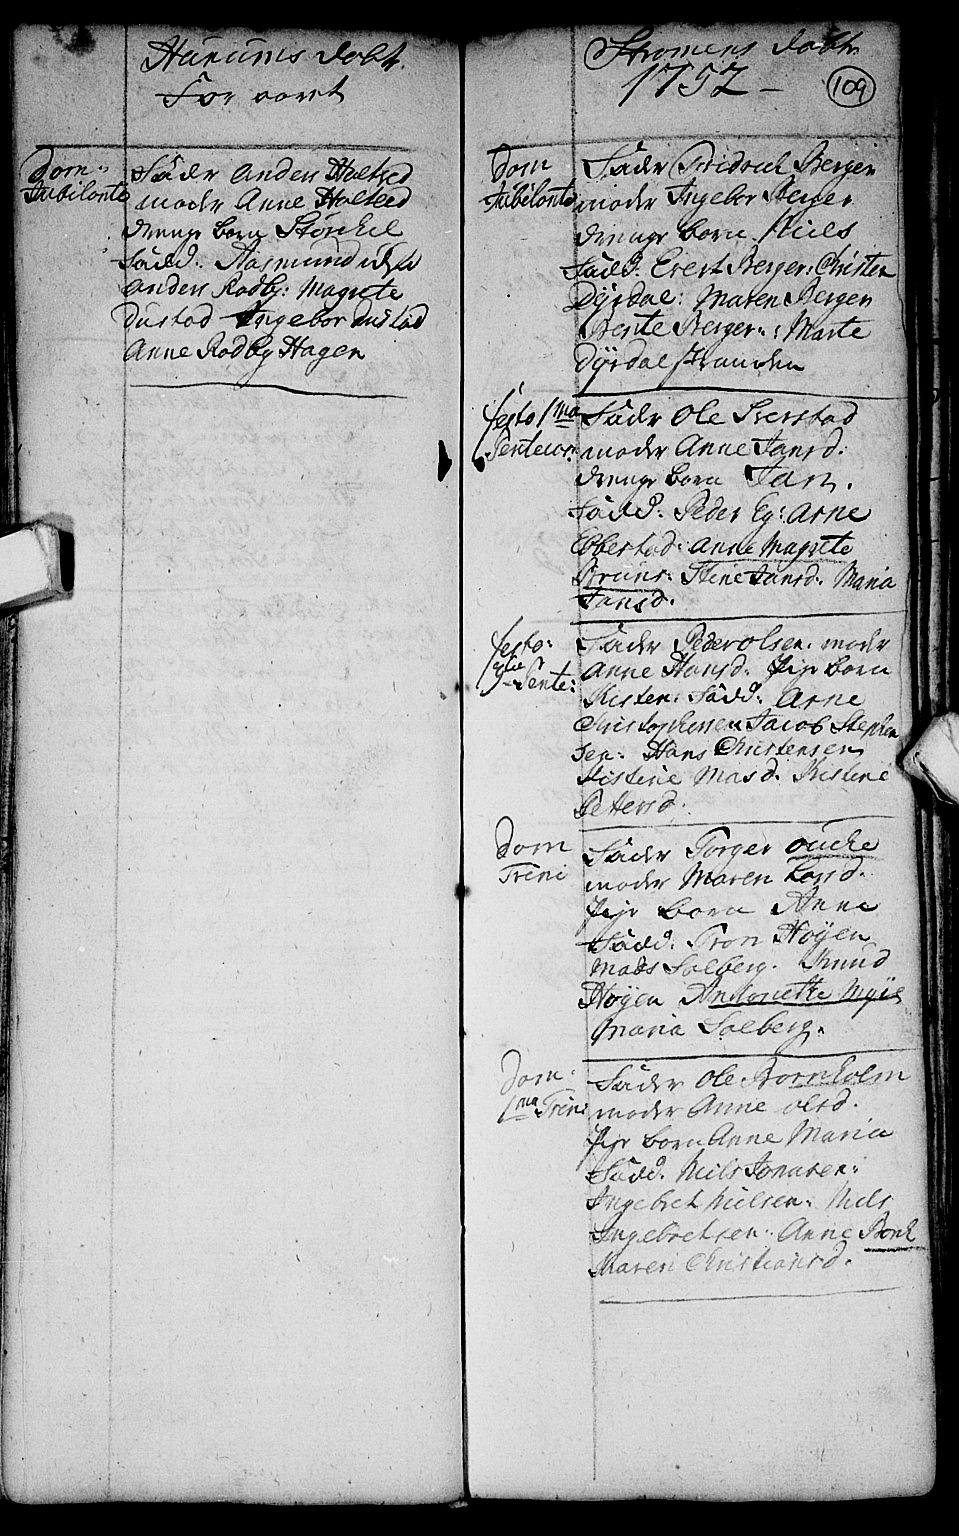 Hurums Dobt.
For aaret
Dom:
Jubilante
Fäder Anders Holtsed
moder Anne Holtsed
drenge born Störchel
fädd: Aasmund
Anders Rødby: Magrete
Dustad Ingebor dustad
Anne Rødby Hagen
Strømens dobt
1752 -
109
Dom
Jubilante
Fäder Fridrech Berger
moder Ingebor Berger
drenge born Niels
fädd: Evert Berger: Christen
Dÿrdal: Maren Berger
Bente Berger: Marte
Dÿrdal stranden
festo 1ma
Pentecos:
Fäder Ole Sverstad
moder Anne Jansd:
drenge born Jan.
Fädd: Peder Eg: Arne
Ebestad: Anne Magrete
Bruns: Stine Jansd: Maria
Jansd.
festo:
Pente:
Fäder Peder Olsen: moder
Anne Hansd: Pige born
Kisten: Fädd: Arne
Christophersen Jacob Stephen
sen: Hans Christensen
Kistene Masd: Kristene
Petersd.
Dom
Trini
Fäder Torger
moder Maren Larsd.
Pige born Anne
Fädd: Tron Höÿen
Mads Solberg. Knud
Höÿen Antonette
Maria Solberg.
Dom:
1ma Trini
Fäder Ole Bornholm
moder Anne Olsd.
Pige born Anne Maria
Fädd: Nils Jonasen:
Ingebret Nielsen: Niels
Ingebretsen: Anne Bork
Maren Christiansd.